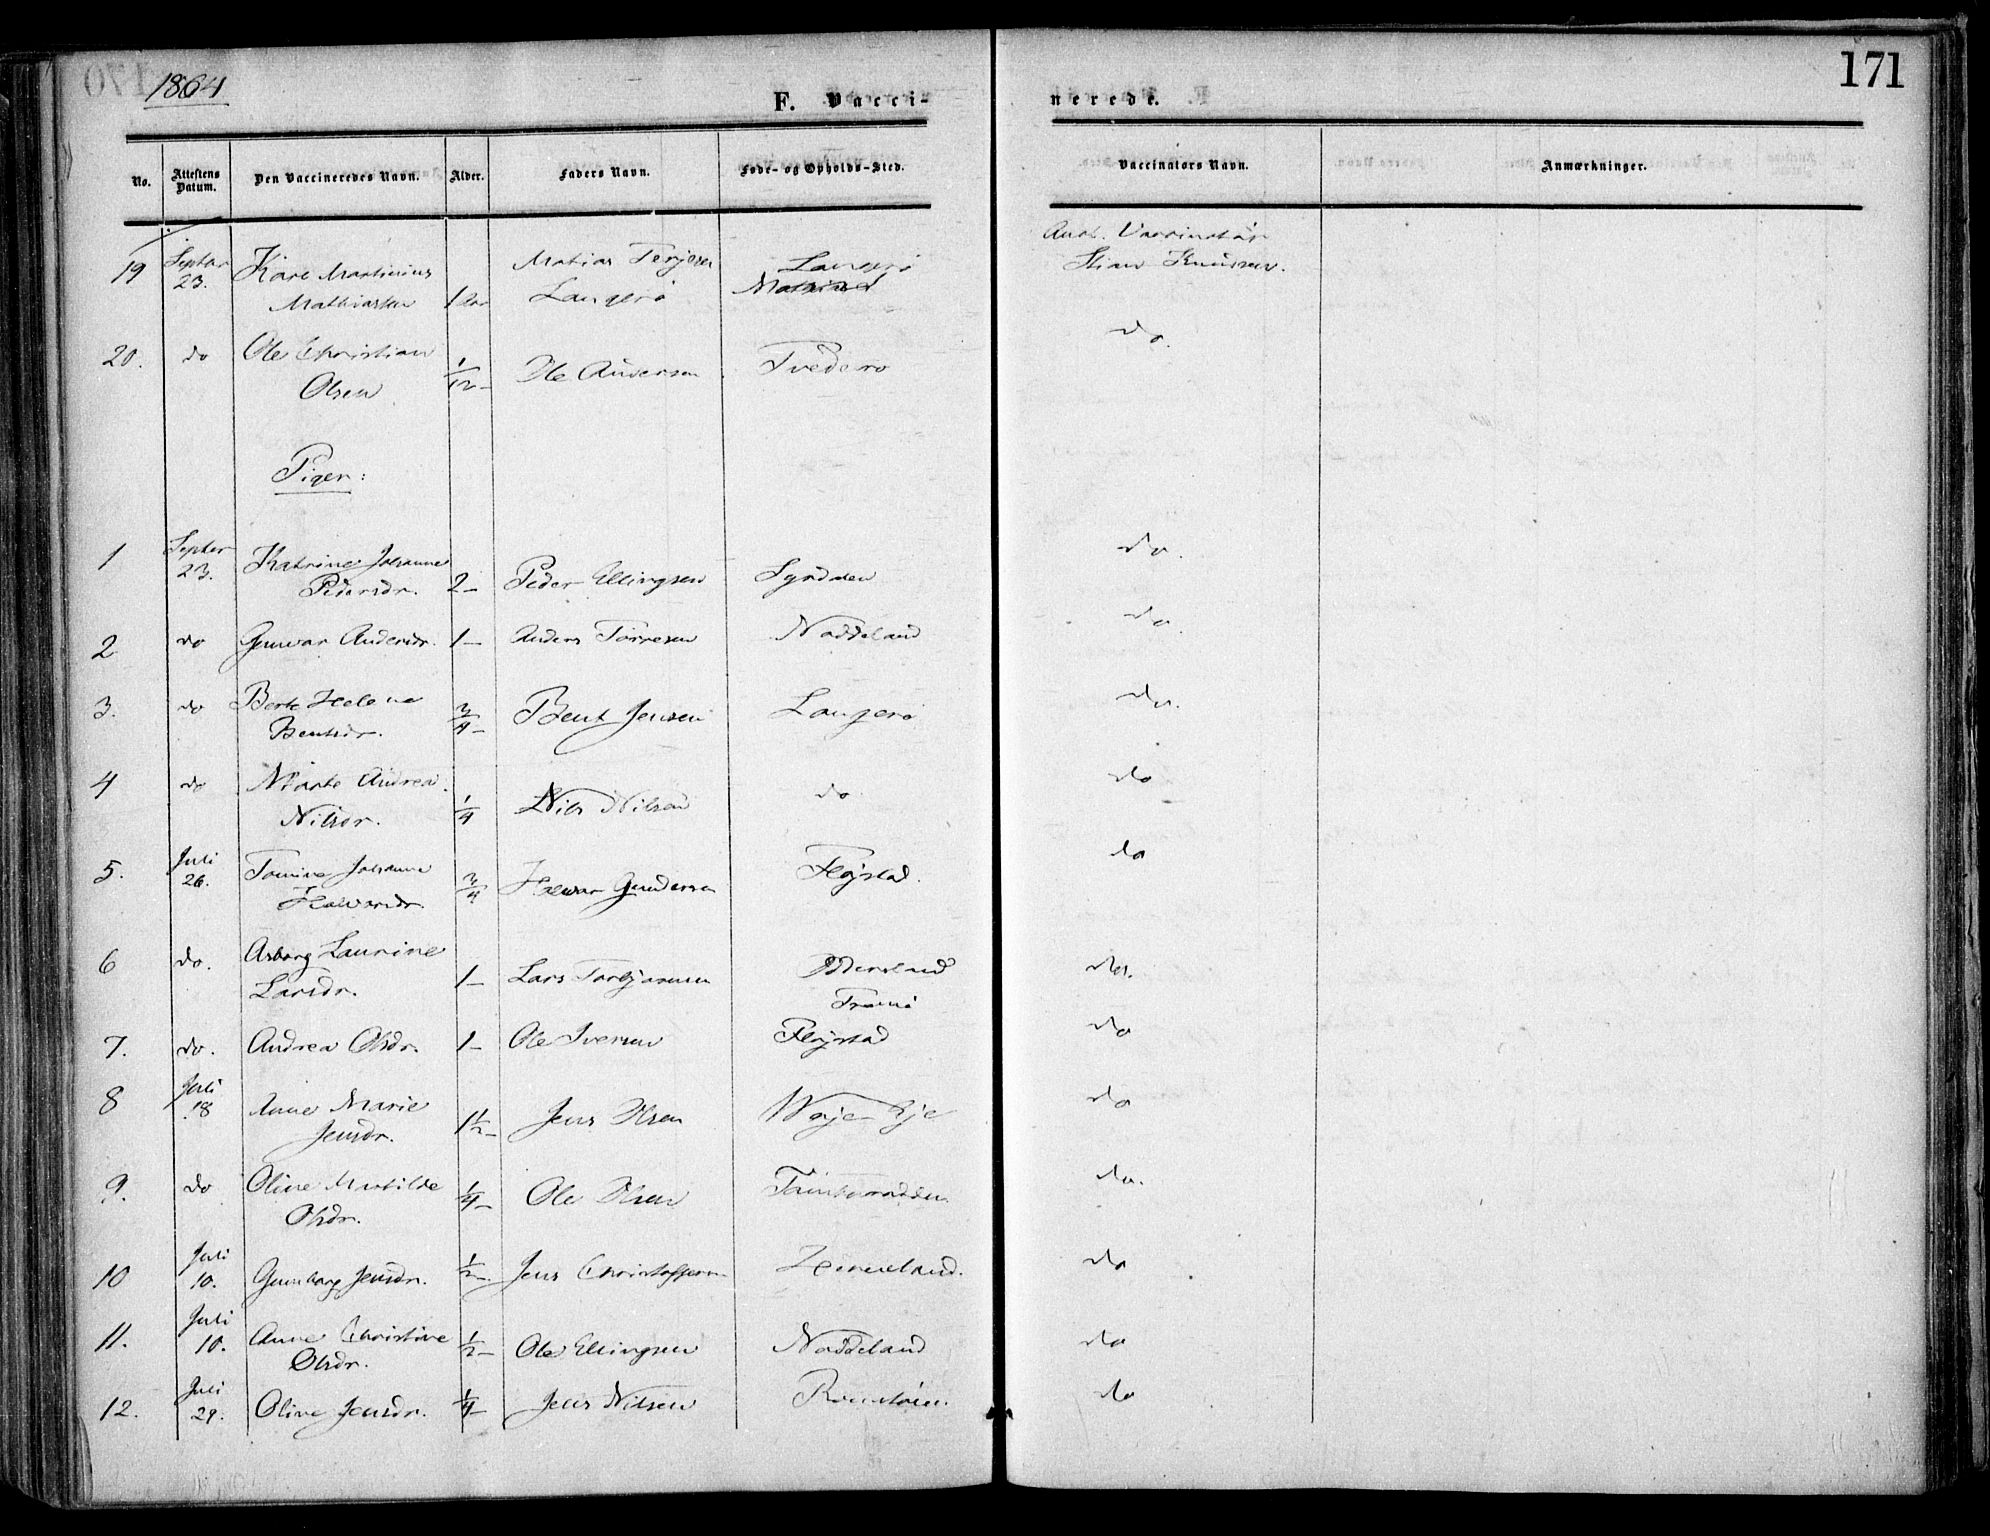 1864
171
F. Vacci-
nerede.
No.
Attestens Datum.
Den Vaccineredes Navn.
Alder.
Faders Navn.
Føde- og Opholds-Sted.
Vaccinators Navn.
Anmærkninger.
19 Septbr 23. Karl Martinius Mathiassen 1 Matias Terjesen Langerø Langerø
Knudsen.
20. do Ole Christian Olsen 1/12 - Ole Andersen Tvederø do.
Piger:
1 Septbr 23. Katrine Johanne Pedersdr. 2 - Peder Ellingsen do.
2 do Gunvor Andersdr. 1 - Anders Torresen Naddeland do.
3. do Berte Helene Bentsdr. 3/4 - Bent Jensen Langerø do.
4 do Marte Andrea Nilsdr. 1/4 Nils Nilsen do do
5. Juli 26. Tomine Johanne Halvorsdr. 3/4 Halvor Gundersen Fløjstad. do
6 do. Asborg Laurine Larsdr. 1 - Lars Torbjørnsen Tromø do.
7. do. Andrea Olsdr. 1 - Ole Iversen Fløjstad do
8 Juli 18 Anne Marie Jensdr. 1 1/2 - Jens Olsen do
9. do Oline Matilde Olsdr. 1/4 - Ole Olsen do.
10 Juli 10. Gunborg Jensdr. 1/2 - Jens Christoffersen do
11. Juli 10. Anne Christine Olsdr. 1/2 - Ole Ellingsen Naddeland do
12. Juli 29. Oline Jensdr. 1/4 - Jens Nilsen do